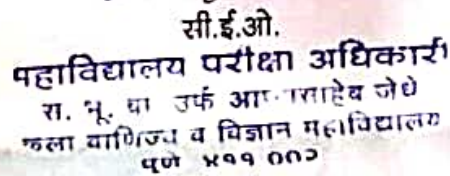 सी.ई.ओ.
महाविद्यालय परीक्षा अधिकारी
रा. भू. उर्फ जेधे
कला वाणिज्य व विज्ञान महाविद्यालय
पुणे ४११ ००२